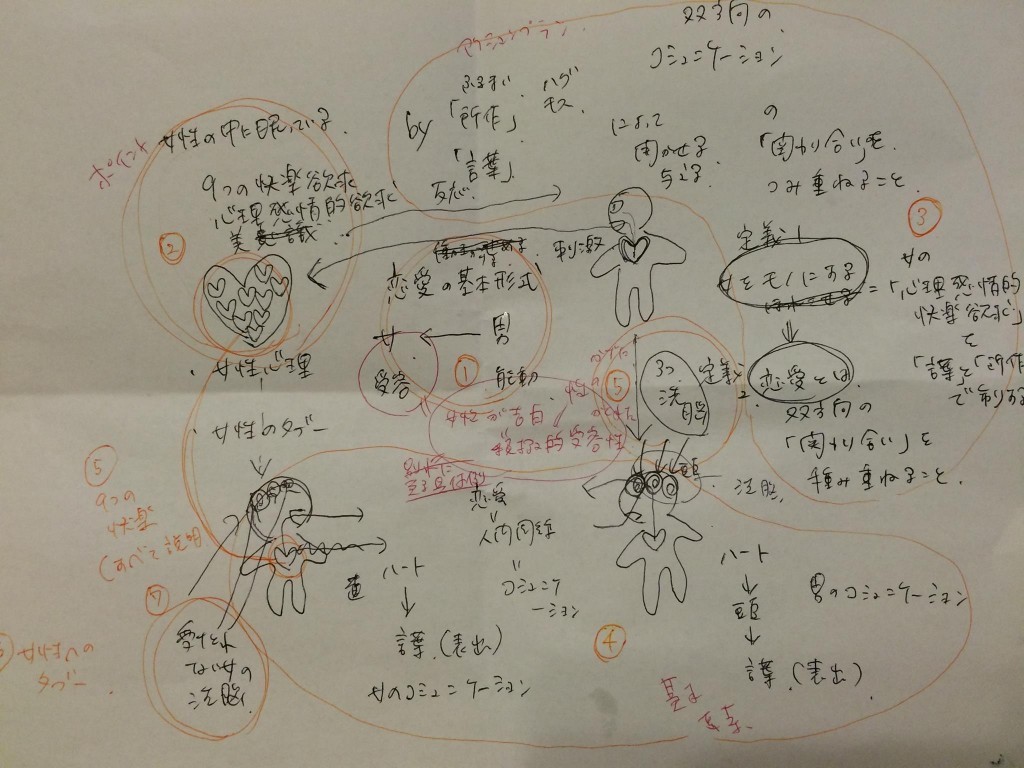 双方向の
コミュニケーション
の
「関わり合い」を
つみ重ねること
アクションプラン
ふるまい
「所作」
ハグ
キス
by
「言葉」
によって
聞かせる
与える
ポイント
女性の中に眠っている
9つの快楽欲求
心理感情的欲求
②
反応
刺激
恋愛の基本形式
女 ← 男
受容
①
能動
③
定義1
女をモノにする
=
女の
「心理感情的
快楽欲求」
を
「言葉」と「所作」
定義2
恋愛とは
双方向の
「関わり合い」を
積み重ねること
3つ
洗脳
⑤
女性心理
女性のタブー
女性が告白
受容性
恋愛
人間関係
コミュニケ
ーション
頭
洗脳
⑤
9つの
快楽
(すべて説明
⑦
愛されない女の
洗脳
女性への
タブー
ハート
↓
言葉(表出)
女のコミュニケーション
ハート
↓
頭
↓
言葉(表出)
男のコミュニケーション
④